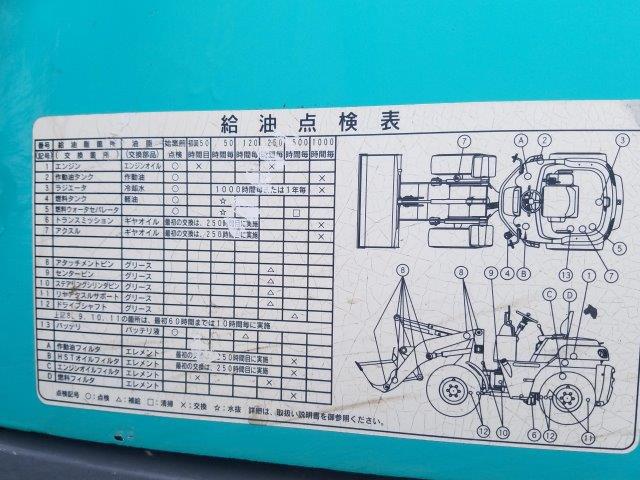 給油点検表
番号 給油脂箇所 油脂 始業前 初回50 50 120 250 500 1000
記号 (交換箇所) (交換部品) 点検 時間目 時間毎 時間毎 時間毎 時間毎 時間毎
1 エンジン エンジンオイル ○ × ×
2 作動油タンク 作動油 ○ ×
3 ラジエータ 冷却水 ○ 1000時間毎または1年毎
4 燃料タンク 軽油 ○ ☆
5 燃料ウォータセパレータ ○ □
6 トランスミッション ギヤオイル 最初の交換は、250時間目に実施 ×
7 アクスル ギヤオイル 最初の交換は、250時間目に実施 ×
8 アタッチメントピン グリース
9 センターピン グリース △
10 ステアリングシリンダピン グリース △
11 リヤアクスルサポート グリース △
12 ドライブシャフト グリース △
上記8、9、10、11の箇所は、最初60時間までは10時間毎に実施
13 バッテリ バッテリ液 ○ △
A 作動油フィルタ エレメント 最初の交換は、250時間目に実施 ×
B HSTオイルフィルタ エレメント 最初の交換は、250時間目に実施 ×
C エンジンオイルフィルタ エレメント × ×
D 燃料フィルタ エレメント ×
点検記号 ○:点検 △:補給 □:清掃 ×:交換 ☆:水抜 詳細は、取扱い説明書を御参照ください。
A 2 3
7
4 B 13 7 5
8 8 9 C D 1
12 10 6 12 11